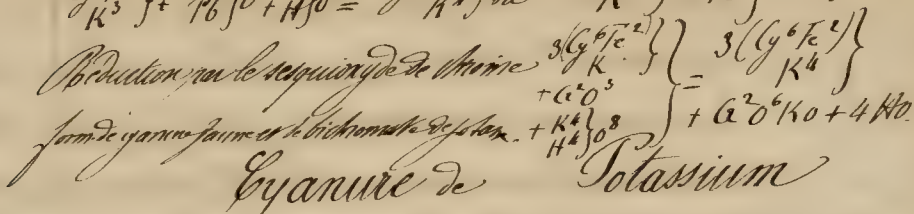 K³ } + Pb } O + H } O = K⁴ }
Réduction par le sesquioxyde de chrome 3(Cy⁶Fe²) K } + C²O³ + K⁴ H⁴ } O⁸ } = 3(Cy⁶Fe²) K⁴ } + C²O⁶Ko + 4 Ho
form. de cyanure jaune et de bichromate de potas.
Cyanure de Potassium